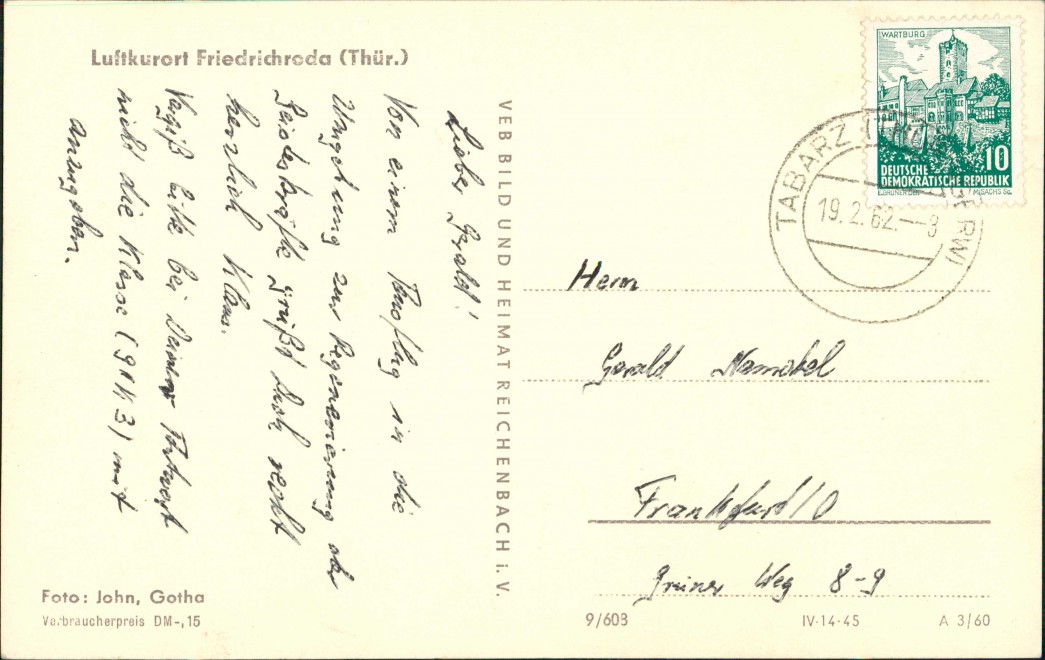 Luftkurort Friedrichroda (Thür.)
Lieber Gerald!
Von einem Ausflug in die
Umgebung zur Regenerierung der
Leideskräfte grüßt Euch recht
herzlich Klaus.
Vergiß bitte bei Deiner Antwort
nicht die Klasse (9 mit
anzugeben.
Foto: John, Gotha
Verbraucherpreis DM -,15
VEB BILD UND HEIMAT REICHENBACH i. V.
WARTBURG
10
DEUTSCHE
DEMOKRATISCHE REPUBLIK
TABARZ
19.2.62.--8
Herrn
Gerald
Frankfurt/O
Grüner Weg 8-9
9/603
IV-14-45
A 3/60